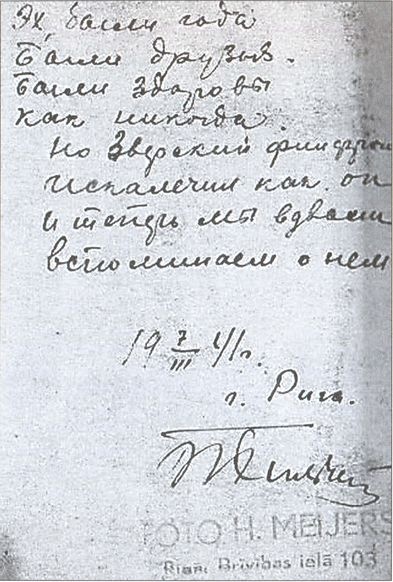 Эх были года
Были друзья.
Были здоровы
как никогда.
Но Зверский
Искалечил как он
и теперь мы вдвоем
вспоминаем о нем
19 7/III 41г.
г. Рига.
FOTO H. MEIJERS
Rīgā, Brīvības ielā 103